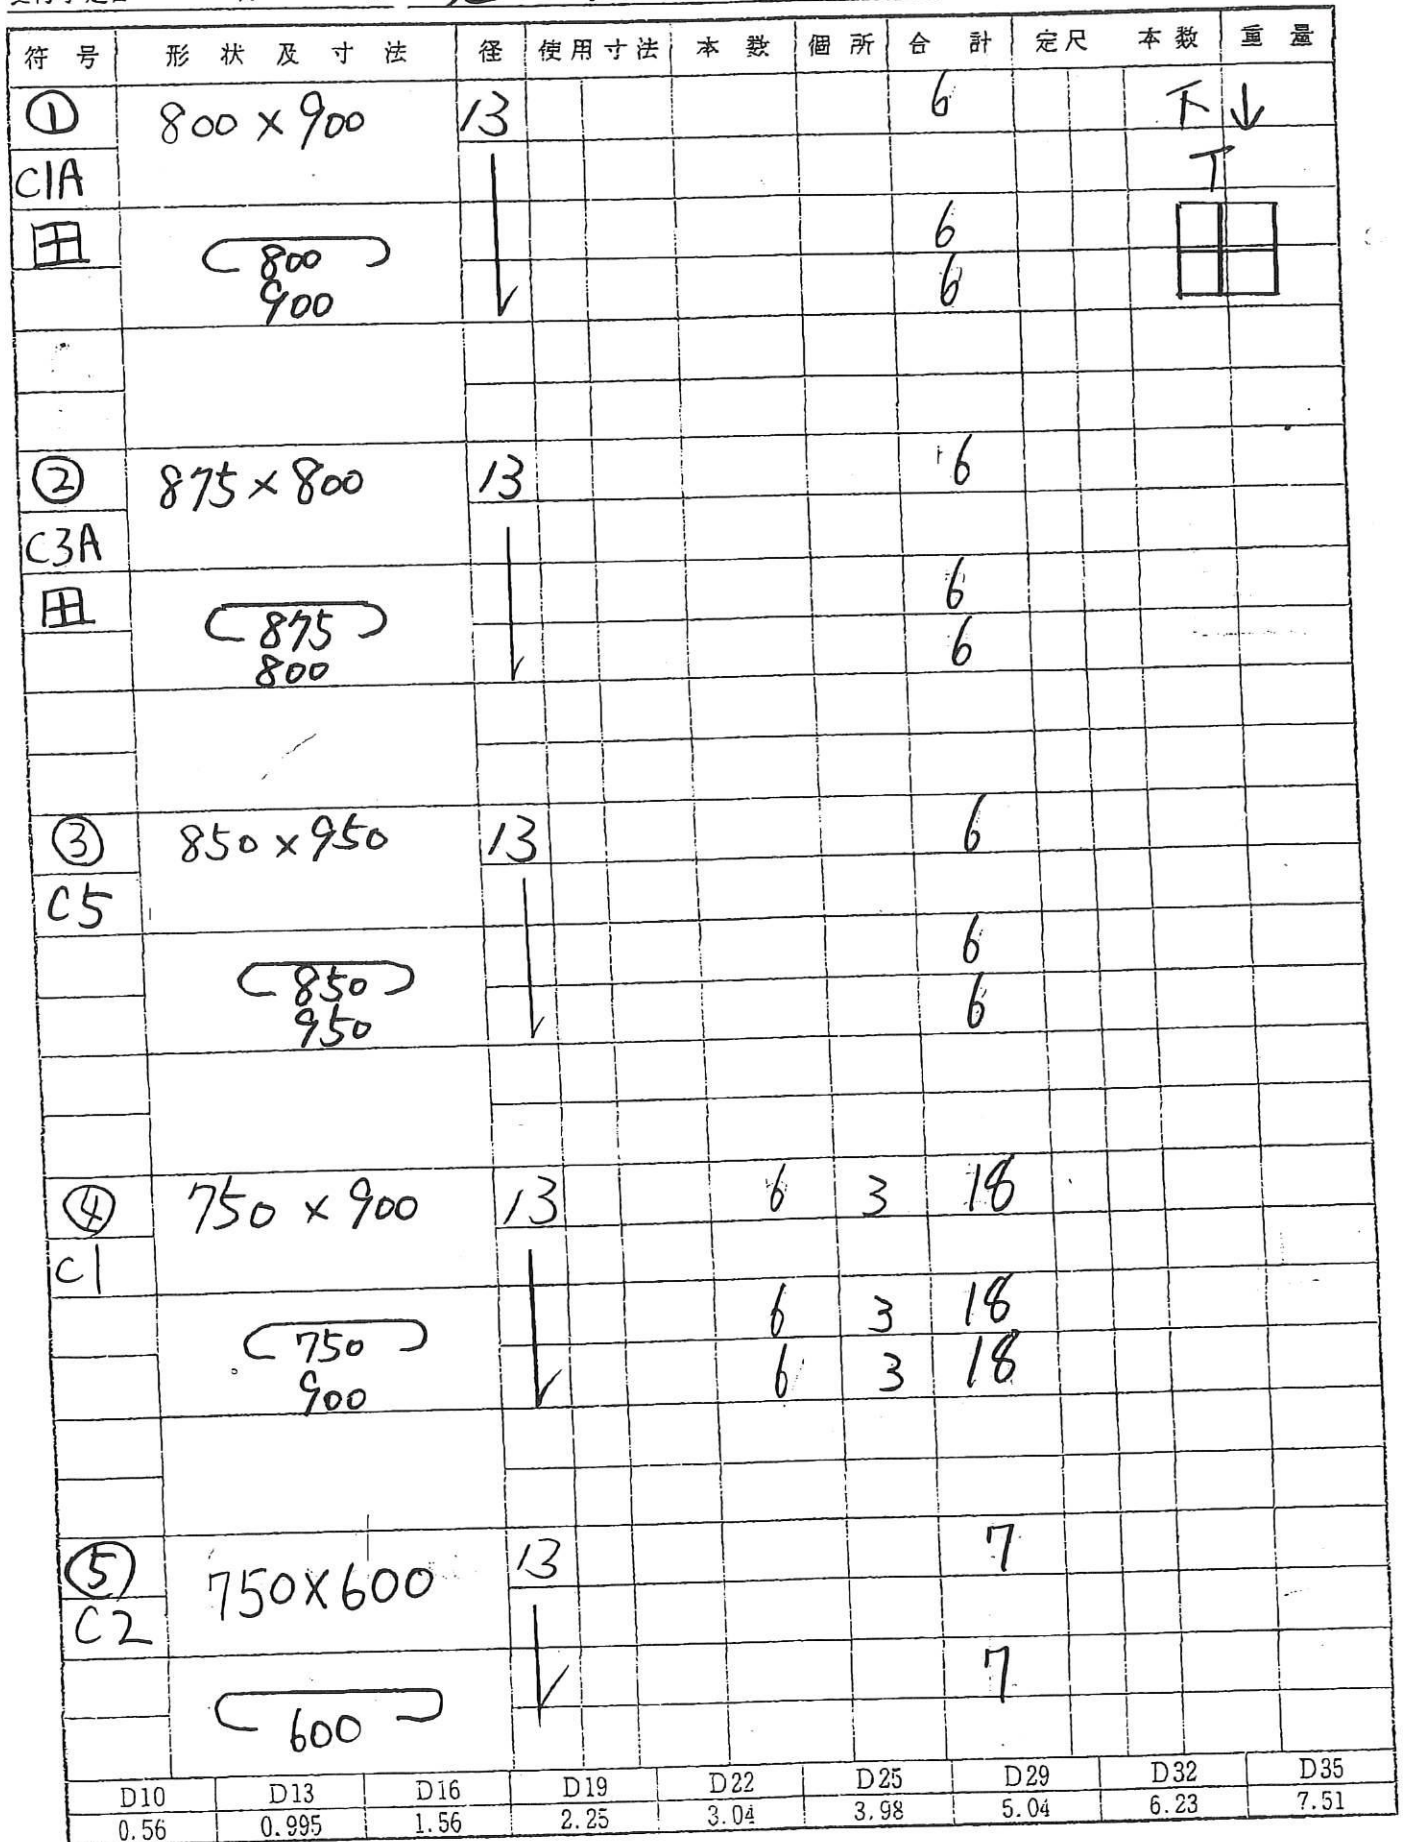 符号 形状及寸法 径 使用寸法 本数 個所 合計 定尺 本数 重量
① 800×900 13 6 下↓
C1A
田 800 6
900 6
② 875×800 13 6
C3A
田 875 6
800 6
③ 850×950 13 6
C5
850 6
950 6
④ 750×900 13 6 3 18
C1
750 6 3 18
900 6 3 18
⑤ 750×600 13 7
C2
600 7
D10 D13 D16 D19 D22 D25 D29 D32 D35
0.56 0.995 1.56 2.25 3.04 3.98 5.04 6.23 7.51